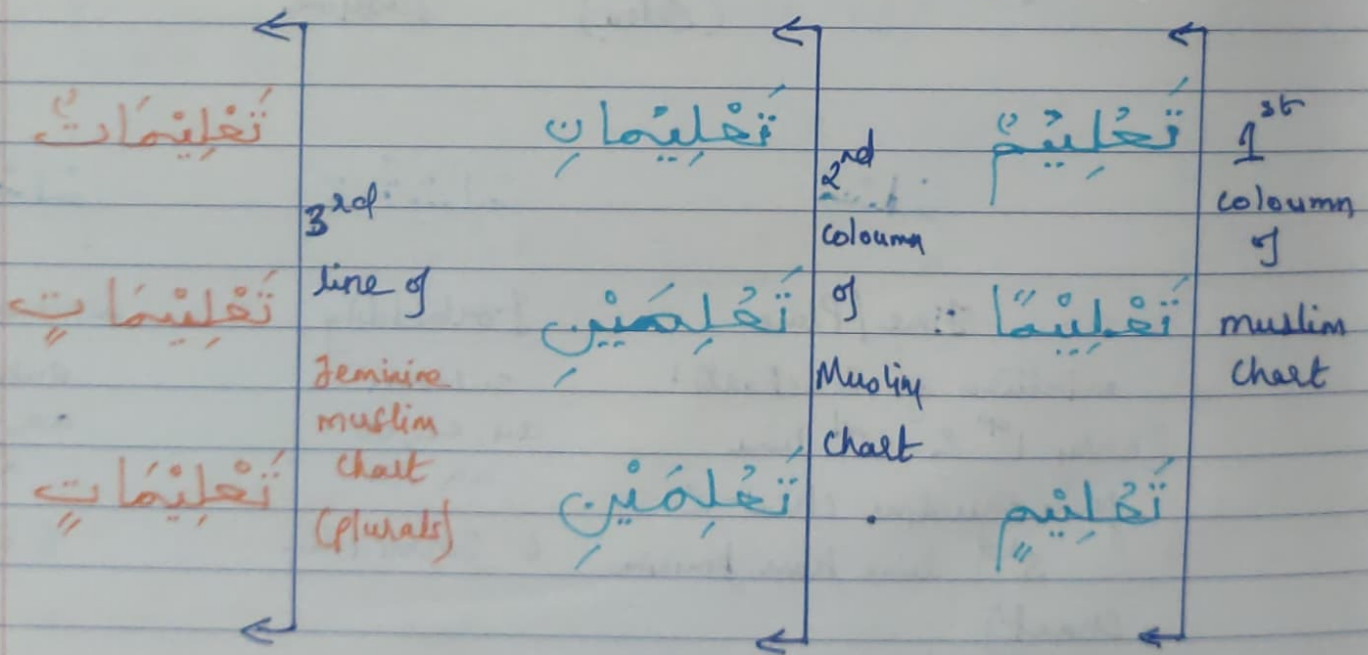 1st
coloumn
of
muslim
chart
تَعْلِيْمٌ
تَعْلِيْمًا
تَعْلِيْمٍ
2nd
coloumn
of
Muslim
chart
تَعْلِيْمانِ
تَعْلِمَيْنِ
تَعْلِمَيْنِ
3rd
line of
feminine
muslim
chart
(plurals)
تَعْلِيْمَاتٌ
تَعْلِيْمَاتٍ
تَعْلِيْمَاتٍ